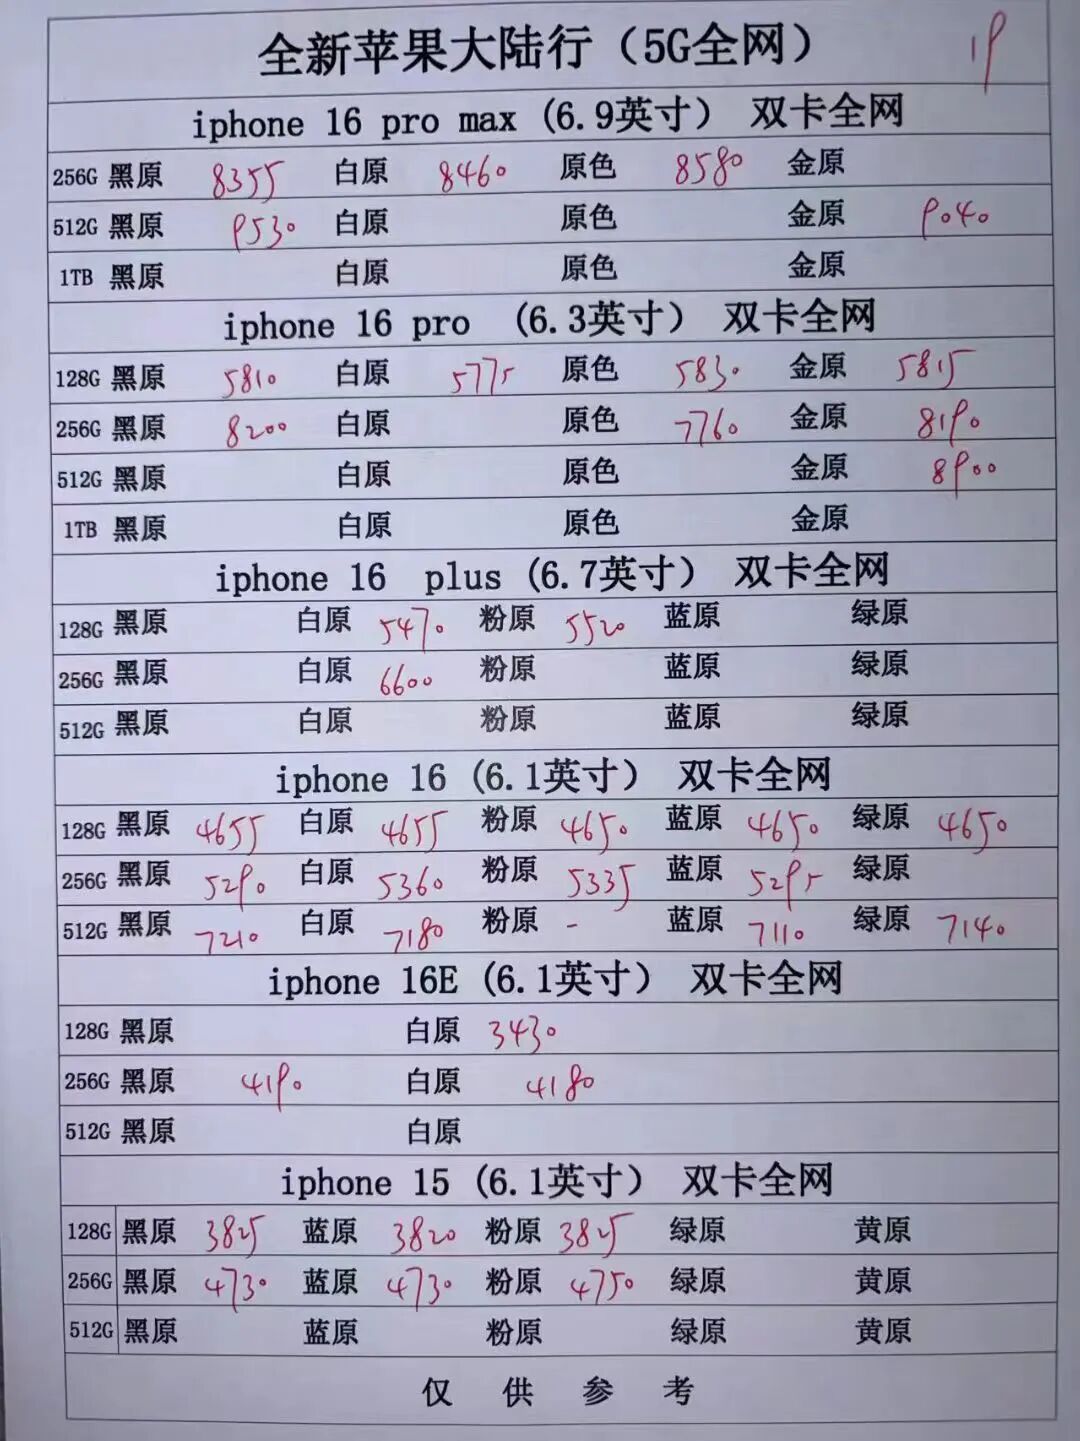 全新苹果大陆行（5G全网） 19
iphone 16 pro max (6.9英寸） 双卡全网
256G 黑原 8355 白原 8460 原色 8580 金原
512G 黑原 9530 白原 原色 金原 9040
1TB 黑原 白原 原色 金原
iphone 16 pro (6.3英寸） 双卡全网
128G 黑原 5810 白原 5775 原色 5830 金原 5815
256G 黑原 8200 白原 原色 7760 金原 8190
512G 黑原 白原 原色 金原 8900
1TB 黑原 白原 原色 金原
iphone 16 plus (6.7英寸） 双卡全网
128G 黑原 白原 5470 粉原 5520 蓝原 绿原
256G 黑原 白原 6600 粉原 蓝原 绿原
512G 黑原 白原 粉原 蓝原 绿原
iphone 16 (6.1英寸） 双卡全网
128G 黑原 4655 白原 4655 粉原 4650 蓝原 4650 绿原 4650
256G 黑原 5290 白原 5360 粉原 5335 蓝原 5295 绿原
512G 黑原 7210 白原 7180 粉原 - 蓝原 7110 绿原 7140
iphone 16E (6.1英寸） 双卡全网
128G 黑原 白原 3430
256G 黑原 4190 白原 4180
512G 黑原 白原
iphone 15 (6.1英寸） 双卡全网
128G 黑原 3825 蓝原 3820 粉原 3825 绿原 黄原
256G 黑原 4730 蓝原 4730 粉原 4750 绿原 黄原
512G 黑原 蓝原 粉原 绿原 黄原
仅 供 参 考